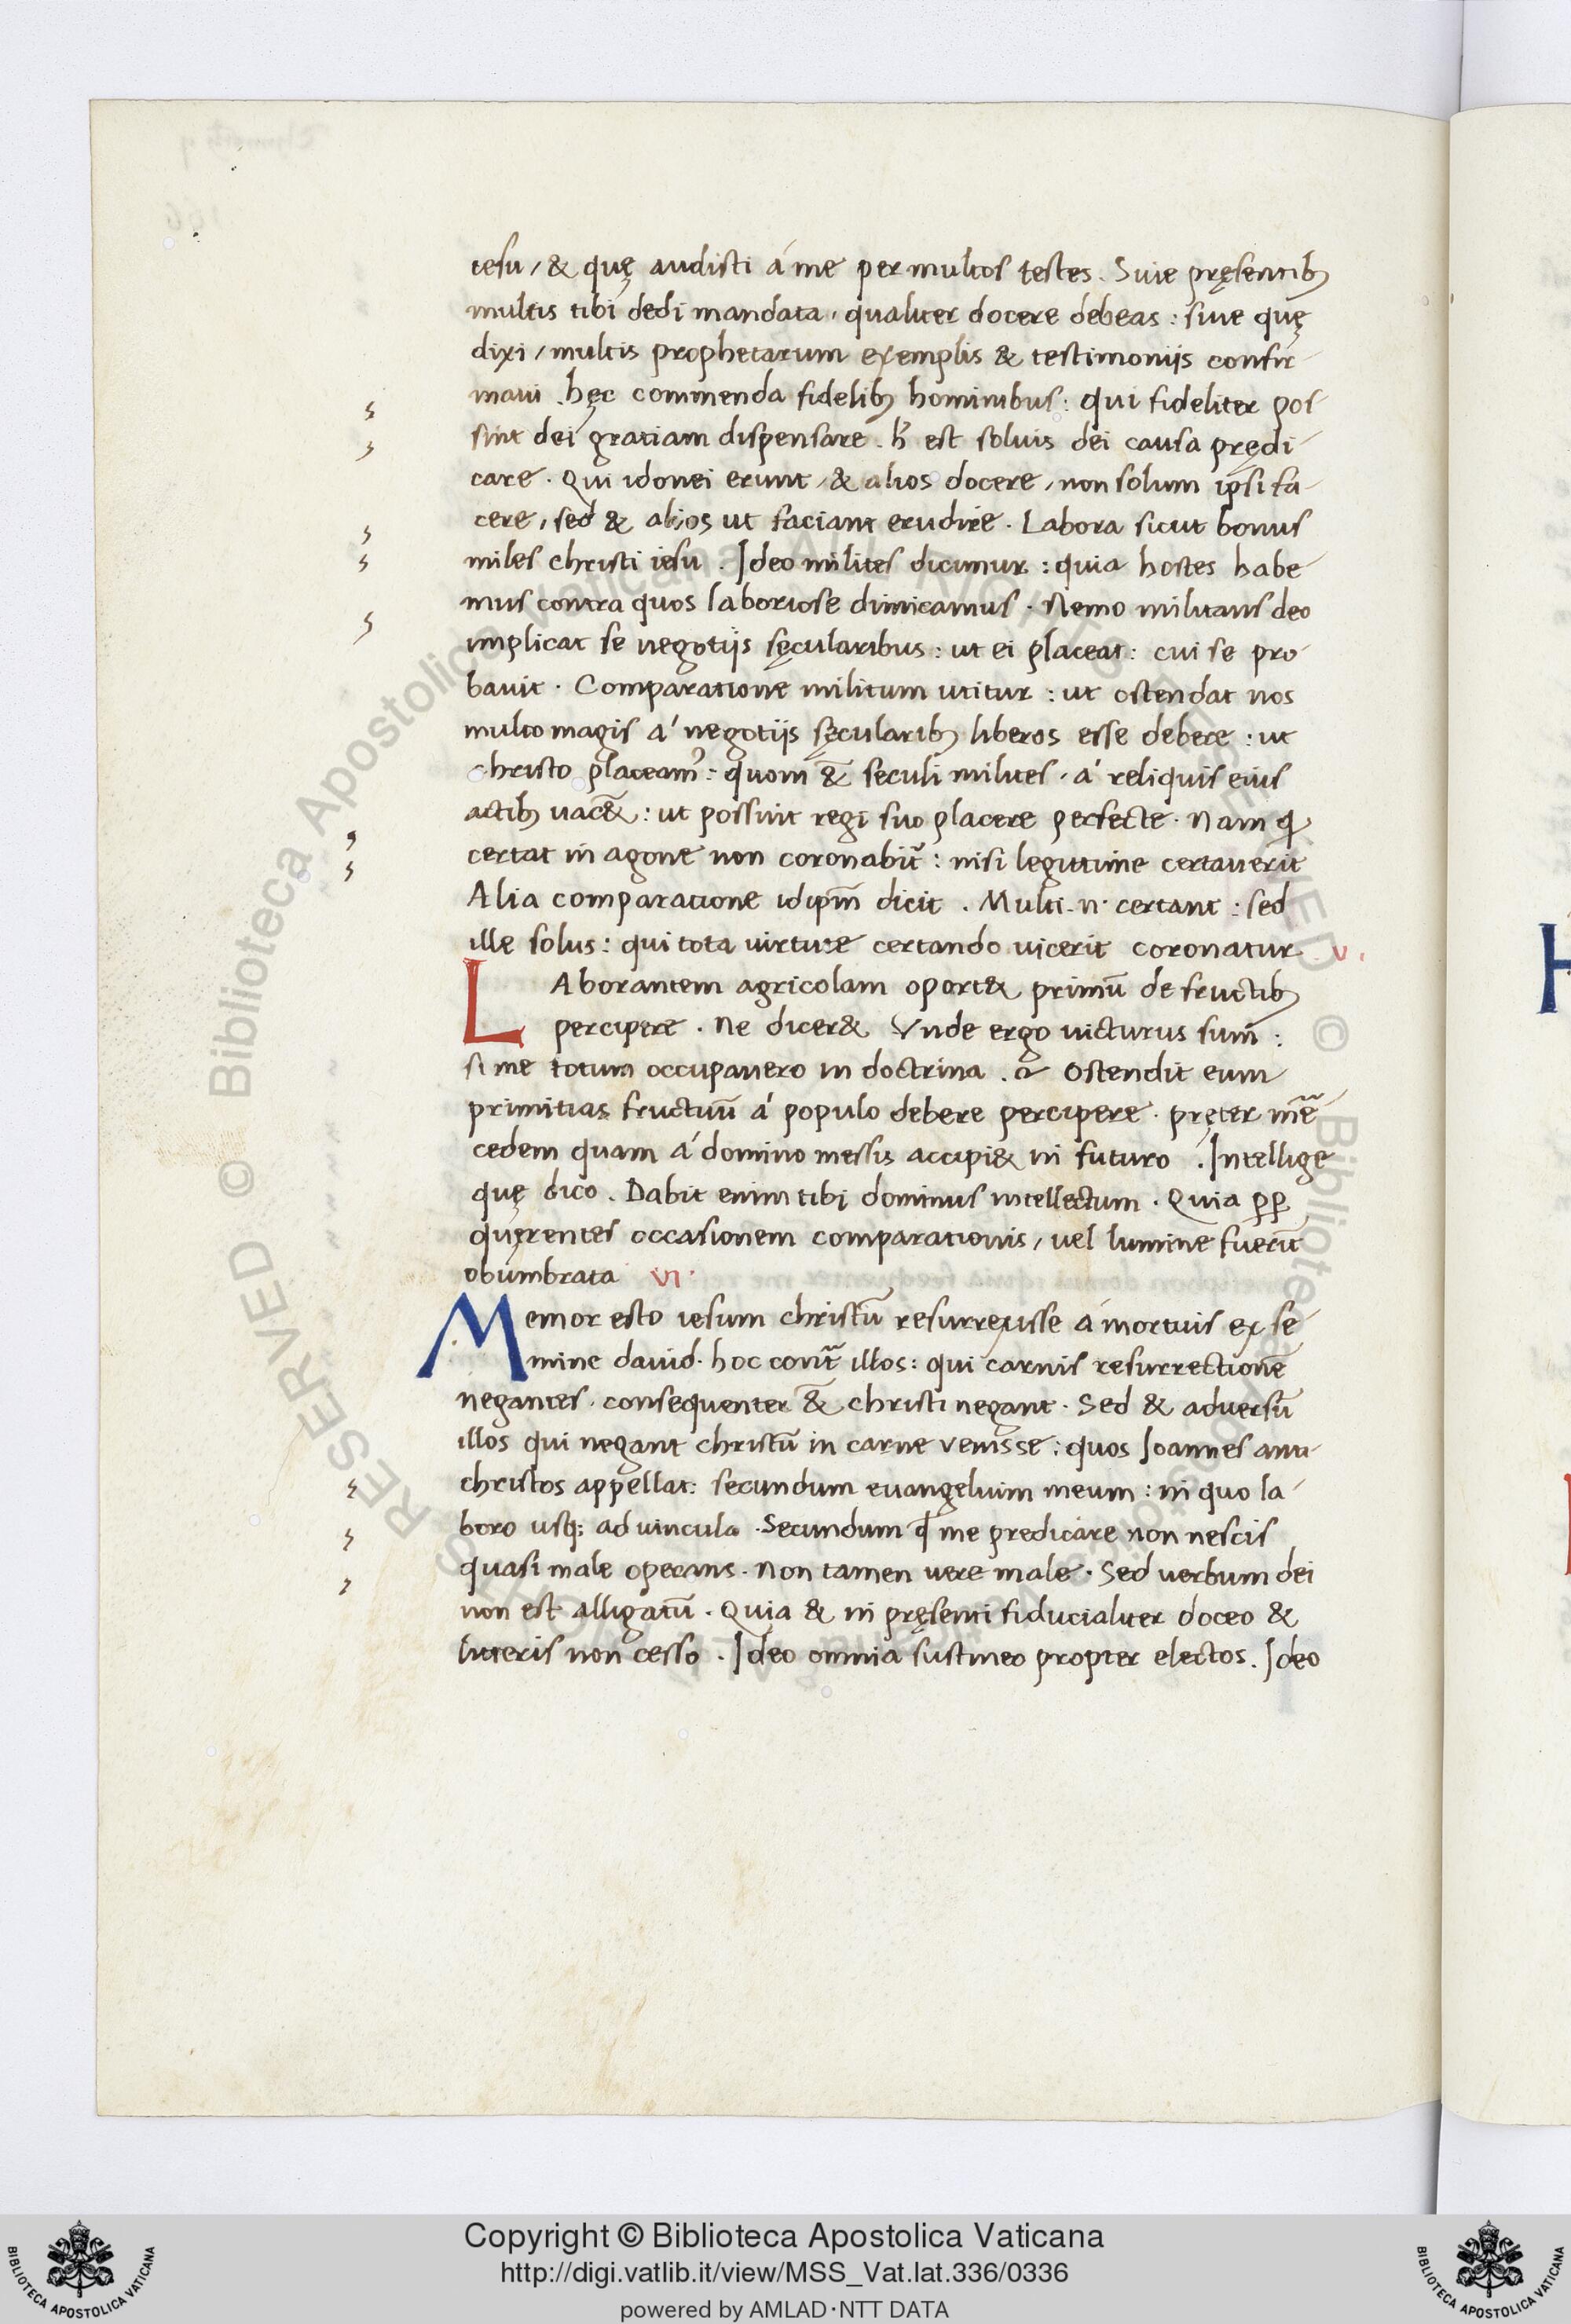 iesu / & quę audisti á me per multos testes. Siue pręsentibꝫ
multis tibi dedi mandata, qualiter docere debeas : siue quę
dixi / multis prophetarum exemplis & testimoniis confir-
maui . hęc commenda fidelibꝫ hominibus : qui fideliter pos-
sint dei gratiam dispensare . h̄ est soluis dei causa prędi-
care . Qui idonei erunt / & alios docere / non solum ip̄si fa-
cere / sed & alios ut faciant erudire . Labora sicut bonus
miles christi iesu . Ideo milites dicimur : quia hostes habe
mus contra quos laboriose dimicamus . Nemo militans deo
implicat se negotiis sęcularibus : ut ei placeat : cui se pro-
bauit . Comparatione militum utitur : ut ostendat nos
multo magis á negotiis sęcularibꝫ liberos esse debere : ut
christo placeamꝰ : quom &̄ seculi milites / á reliquis eius
actibꝫ uac&̄ : ut possint regi suo placere perfecte . Nam ꝗ
certat in agone non coronabit᷑ : nisi legittime certauerit
Alia comparatione idip̄m dicit . Multi .n. certant : sed
ille solus : qui tota uirtute certando uicerit coronatur v.
LAborantem agricolam oport& primū de fructibꝫ
percipere . Ne dicer& Vnde ergo uicturus sum̄ :
si me totum occupauero in doctrina . Ostendit eum
primitias fructuū á populo debere percipere . pręter mer̄-
cedem quam á domino messis accipi& in futuro . Intellige
quę dico . Dabit enim tibi dominus intellectum . Quia ꝑꝑ
quęrentes occasionem comparationis / uel lumine fuerīt
obumbrata vi.
Memor esto iesum christū resurrexisse á mortuis ex se-
mine dauid . hoc cont᷑ illos : qui carnis resurrectionē
negantes . consequenter &̄ christi negant . Sed & aduersū
illos qui negant christū in carne venisse : quos Ioannes anti-
christos appellat : secundum euangelium meum : in quo la-
boro usqꝫ ad uincula . Secundum ꝙ me predicare non nescis
quasi male operans . Non tamen vere male . Sed uerbum dei
non est alligatū . Quia & in pręsenti fiducialiter doceo &
litteris non cesso . Ideo omnia sustineo propter electos . Ideo
Copyright © Biblioteca Apostolica Vaticana
http://digi.vatlib.it/view/MSS_Vat.lat.336/0336
powered by AMLAD·NTT DATA